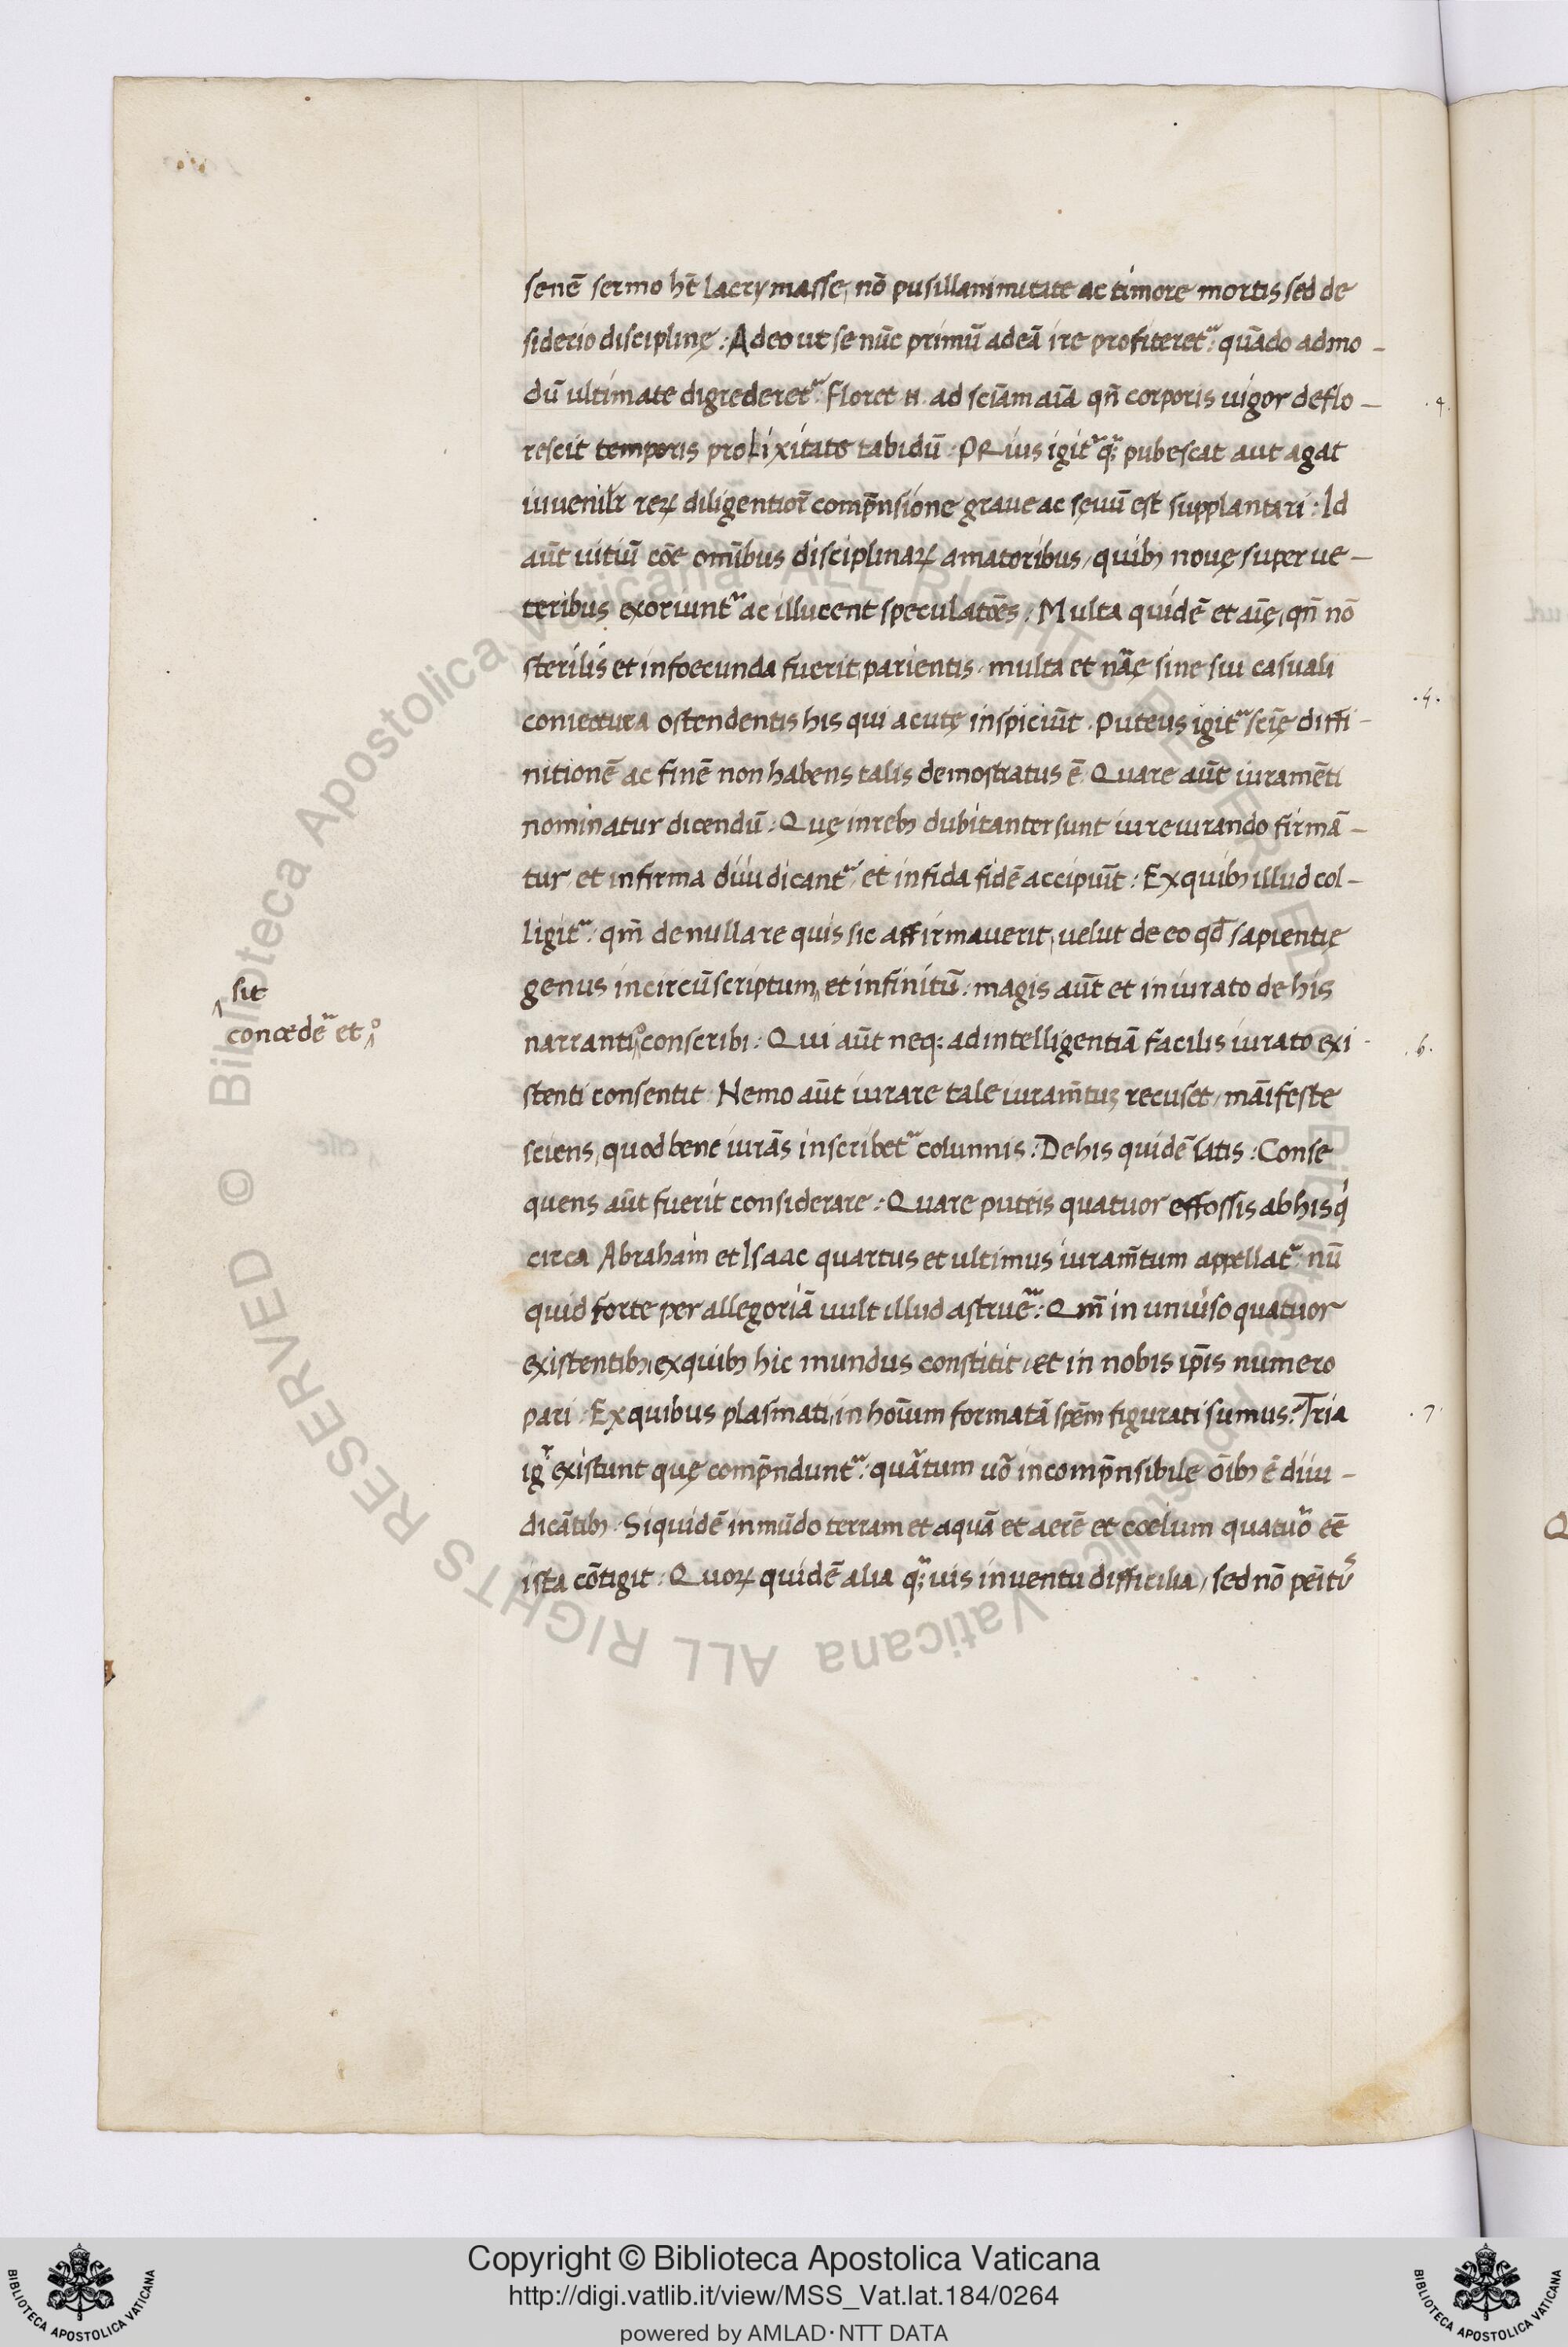 senē sermo hēt lacrymasse, nō pusillanimitate ac timore mortis sed de
siderio disciplinę: Adeo ut se nūc primū ad eā ire profiteret᷑: quādo admo-
dū ultimate digrederet᷑. Floret n. ad sciām aīā qn̄ corporis uigor deflo-
rescit temporis prolixitate tabidū: PRius igit᷑ q̄; pubescat aut agat
iuuenilr̄ reꝝ diligentior̄ comp̄nsione graue ac sęuū est supplantari: Id
aūt uitiū cōe omībus disciplinaꝝ amatoribus, quibȝ nouę super ue-
teribus exoriunt᷑ ac illucent speculatōes: Multa quidē et aīę, qn̄ nō
sterilis et infoecunda fuerit, parientis. multa et nāę sine sui casuali
coniectura ostendentis his qui acutę inspiciūt. Puteus igit᷑ scię diffi-
nitionē ac finē non habens talis demostratus ē. Quare aūt iuramēti
nominatur dicendū: Quę in rebȝ dubitanter sunt iureiurando firmā-
tur, et infirma diiudicant᷑, et infida fidē accipiūt: Ex quibȝ illud col-
ligit᷑: qm̄ de nulla re quis sic affirmauerit, uelut de eo qd̄ sapientię
genus incircūscriptum‸ et infinitū: magis aūt et iniurato de his
‸sit
narranti‸° conscribi: Qui aūt neq; ad intelligentiā facilis iurato exi-
concedē᷑ et‸°
stenti consentit. Nemo aūt iurare tale iuram̄tuȝ recuset, māifeste
sciens, quod bene iurās inscribet᷑ colunnis: De his quidē satis: Conse
quens aūt fuerit considerare: Quare puteis quatuor effossis ab his q̇
circa Abraham et Isaac quartus et ultimus iuram̄tum appellat᷑: nū
quid forte per allegoriā uult illud astruē᷑: Qm̄ in uniu̇so quatuor
existentibȝ, ex quibȝ hic mundus constitit, et in nobis ip̄is numero
pari: Ex quibus plasmati, in hoīum formatā spēm figurati sumus: Tria
ig᷑ existunt quę comp̄ndunt᷑: quātum uō incomp̄nsibile oībȝ ē diiu-
dicātibȝ. Siquidē in mūdo terram et aquā et aerē et coelum quatuōr eē
ista cōtigit: Quoꝝ quidē alia q̄;uis inuentu difficilia, sed nō peīt᷑
.4.
.4.
.6.
.7.
Copyright © Biblioteca Apostolica Vaticana
http://digi.vatlib.it/view/MSS_Vat.lat.184/0264
powered by AMLAD·NTT DATA
BIBLIOTECA APOSTOLICA VATICANA
BIBLIOTECA APOSTOLICA VATICANA
© Biblioteca Apostolica Vaticana ALL RIGHTS RESERVED
© Biblioteca Apostolica Vaticana ALL RIGHTS RESERVED